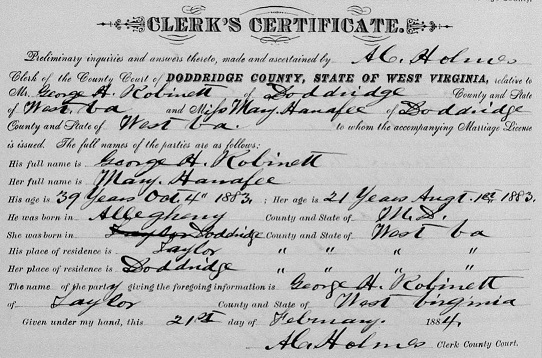 CLERK'S CERTIFICATE.
Preliminary inquiries and answers thereto, made and ascertained by A C. Holmes
Clerk of the County Court of DODDRIDGE COUNTY, STATE OF WEST VIRGINIA, relative to
Mr. George H. Robinett of Doddridge County and State
of West Va and Miss Mary. Hanafee of Doddridge
County and State of West Va. to whom the accompanying Marriage License
is issued. The full names of the parties are as follows:
His full name is George H. Robinett
Her full name is Mary. Hanafee
His age is 39 Years Oct. 4" 1883, ; Her age is 21 Years Augt. 1st 1883.
He was born in Allegheny County and State of M.D.
She was born in Taylor Doddridge County and State of West Va
His place of residence is Taylor " " " "
Her place of residence is Doddridge " " " "
The name of the party giving the foregoing information is George H. Robinett
of Taylor County and State of West Virginia
Given under my hand, this 21st day of February. 1884.
A C. Holmes Clerk County Court.